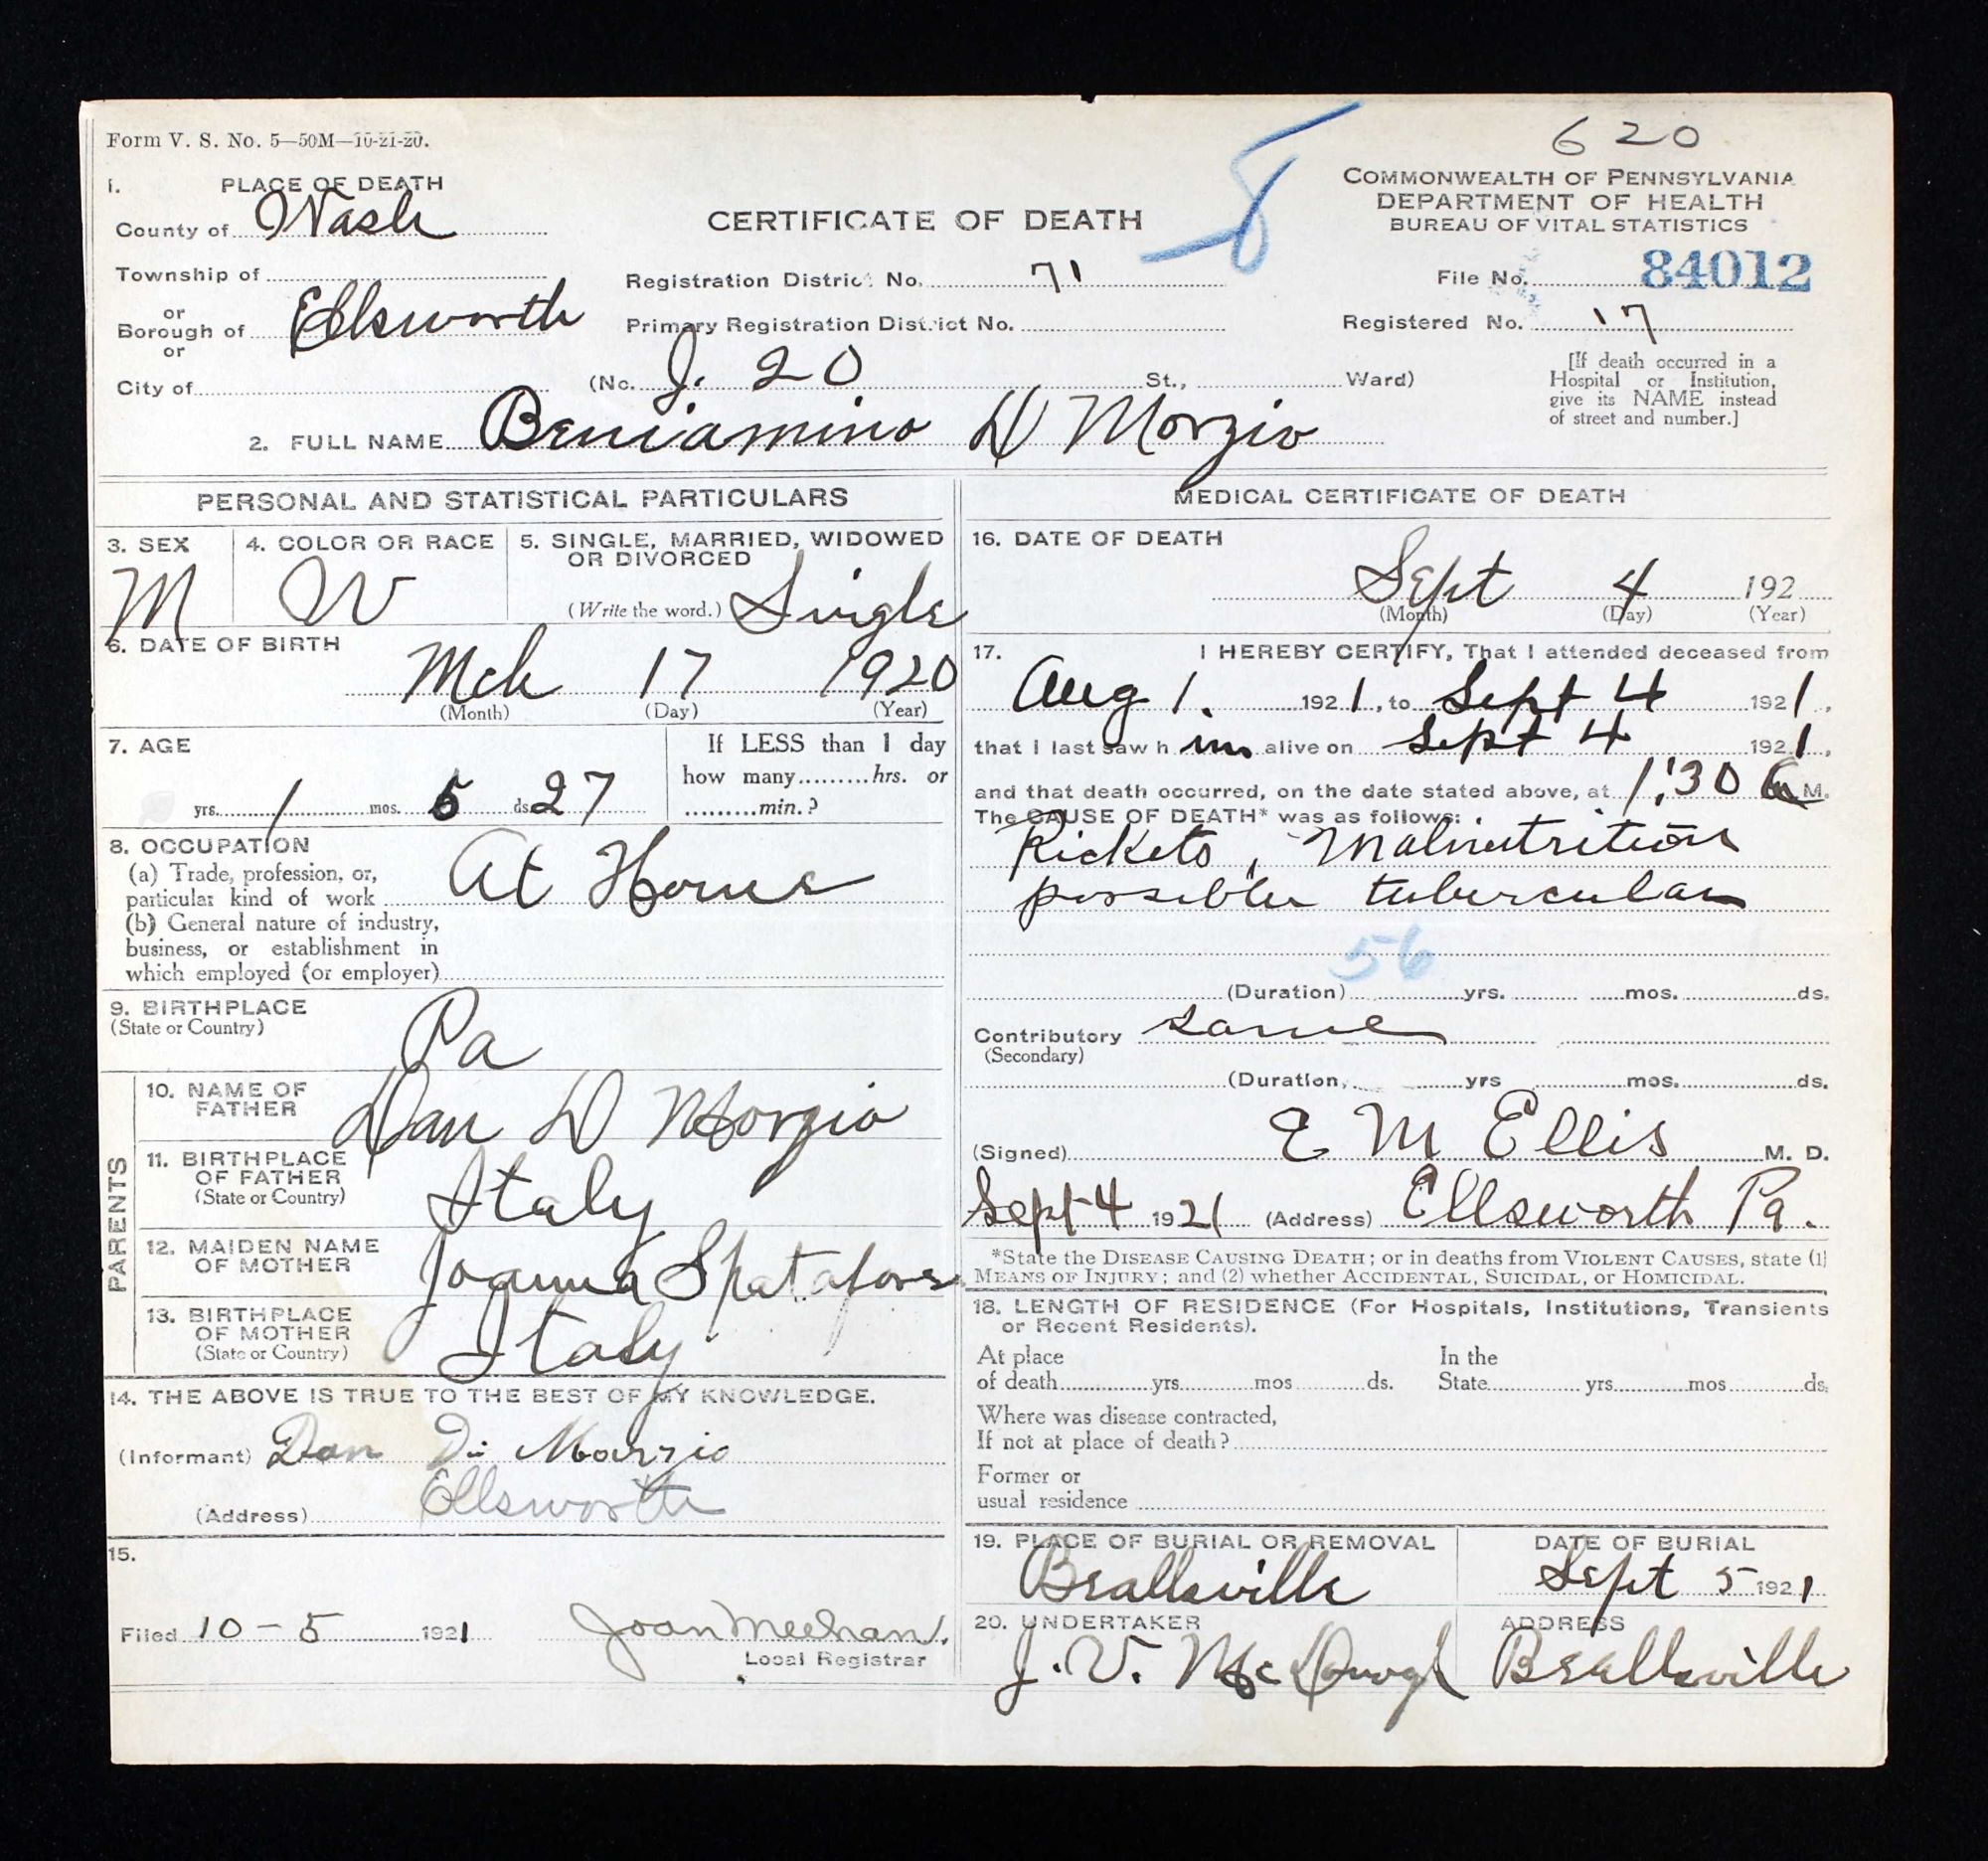 Form V. S. No. 5—50M—10-21-20.
620
1. PLACE OF DEATH
County of Wash
Township of
or
Borough of Ellsworth
or
City of
CERTIFICATE OF DEATH
Registration District No. 71
Primary Registration District No.
(No. J. 20 St., Ward)
COMMONWEALTH OF PENNSYLVANIA
DEPARTMENT OF HEALTH
BUREAU OF VITAL STATISTICS
File No. 84012
Registered No. 17
[If death occurred in a
Hospital or Institution,
give its NAME instead
of street and number.]
2. FULL NAME Beniamino D Morzio
PERSONAL AND STATISTICAL PARTICULARS
3. SEX
M
4. COLOR OR RACE
W
5. SINGLE, MARRIED, WIDOWED
OR DIVORCED
(Write the word.) Single
6. DATE OF BIRTH
Mch 17 1920
(Month) (Day) (Year)
7. AGE
yrs. 1 mos. 5 ds. 27
If LESS than 1 day
how many hrs. or
min.?
8. OCCUPATION
(a) Trade, profession, or,
particular kind of work At Home
(b) General nature of industry,
business, or establishment in
which employed (or employer)
9. BIRTHPLACE
(State or Country)
Pa
PARENTS
10. NAME OF
FATHER
Dan D Morzio
11. BIRTHPLACE
OF FATHER
(State or Country)
Italy
12. MAIDEN NAME
OF MOTHER
Joanna Spatafore
13. BIRTHPLACE
OF MOTHER
(State or Country)
Italy
14. THE ABOVE IS TRUE TO THE BEST OF MY KNOWLEDGE.
(Informant) Dan Di Marzio
(Address) Ellsworth
15.
Filed 10-5 1921 Joan Meehan
Local Registrar
MEDICAL CERTIFICATE OF DEATH
16. DATE OF DEATH
Sept 4 192
(Month) (Day) (Year)
17. I HEREBY CERTIFY, That I attended deceased from
Aug 1. 1921, to Sept 4 1921,
that I last saw him alive on Sept 4 1921,
and that death occurred, on the date stated above, at 1:30 a M.
The CAUSE OF DEATH* was as follows:
Rickets, Malnutrition
possible tubercular
56
(Duration) yrs. mos. ds.
Contributory same
(Secondary)
(Duration, yrs mos. ds.
(Signed) E M Ellis M. D.
Sept 4 1921 (Address) Ellsworth Pa.
*State the DISEASE CAUSING DEATH; or in deaths from VIOLENT CAUSES, state (1)
MEANS OF INJURY; and (2) whether ACCIDENTAL, SUICIDAL, or HOMICIDAL.
18. LENGTH OF RESIDENCE (For Hospitals, Institutions, Transients
or Recent Residents).
At place
of death yrs. mos ds.
In the
State yrs. mos ds.
Where was disease contracted,
If not at place of death?
Former or
usual residence
19. PLACE OF BURIAL OR REMOVAL
Beallsville
DATE OF BURIAL
Sept 5 1921
20. UNDERTAKER
J. V.
ADDRESS
Beallsville